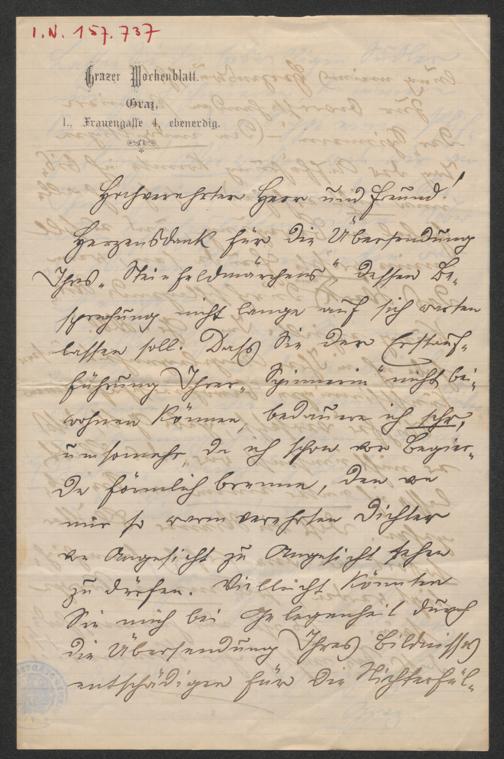 I.N. 157.737
Grazer Wochenblatt.
Graz,
I., Frauengasse 4, ebenerdig.
Hochverehrter Herr und Freund!
Herzensdank für die Übersendung
Ihres „Steinfeldmärchens" dessen Be-
sprechung nicht lange auf sich warten
lassen soll. Daß Sie der Erstauf-
führung Ihrer „Spinnerin" nicht bei-
wohnen können, bedauere ich sehr,
umsomehr, da ich schon vor Begier-
de förmlich brenne, den von
mir so warm verehrten Dichter
von Angesicht zu Angesicht sehen
zu dürfen. Vielleicht könnten
Sie mich bei Gelegenheit durch
die Übersendung Ihres Bildnisses
entschädigen für die Nichterfül-